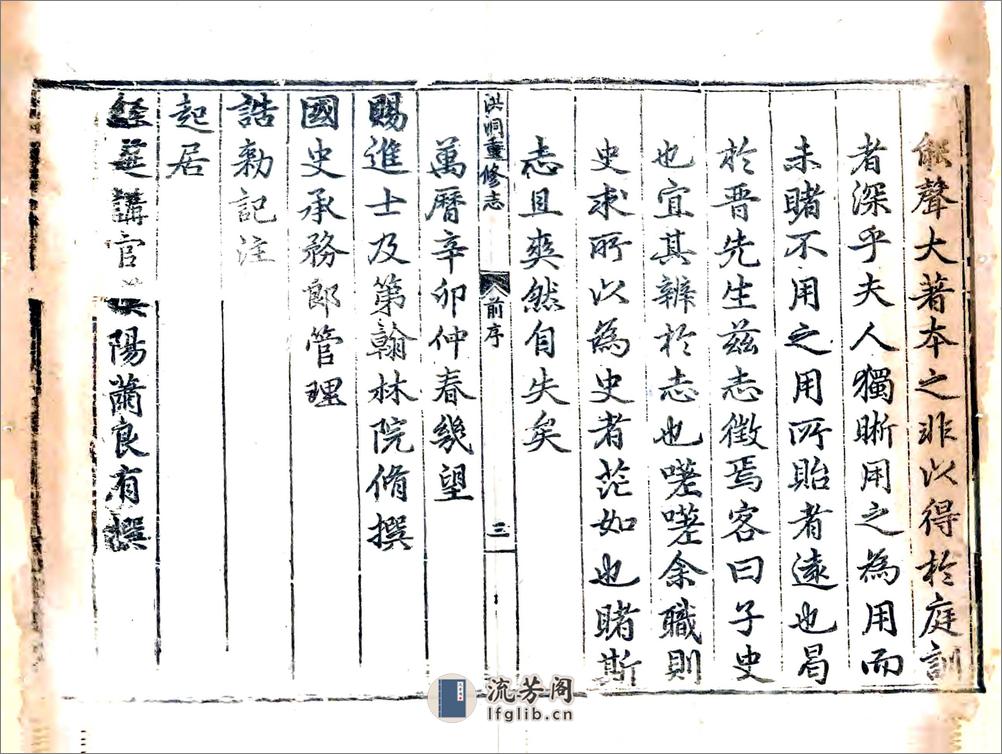 能聲大著本之非以得於庭訓
者深乎夫人獨晰用之為用而
未睹不用之用所貽者遠也曷
於晋先生兹志徵焉客曰子史
也宜其辨於志也嗟嗟余職則
史求所以為史者茫如也睹斯
志且爽然自失矣
洪洞重修志 前序 三
萬曆辛卯仲春幾望
賜進士及第翰林院脩撰
國史承務郎管理
誥勑記注
起居
經筵講官漢陽蕭良有撰
流芳阁
lfglib.cn